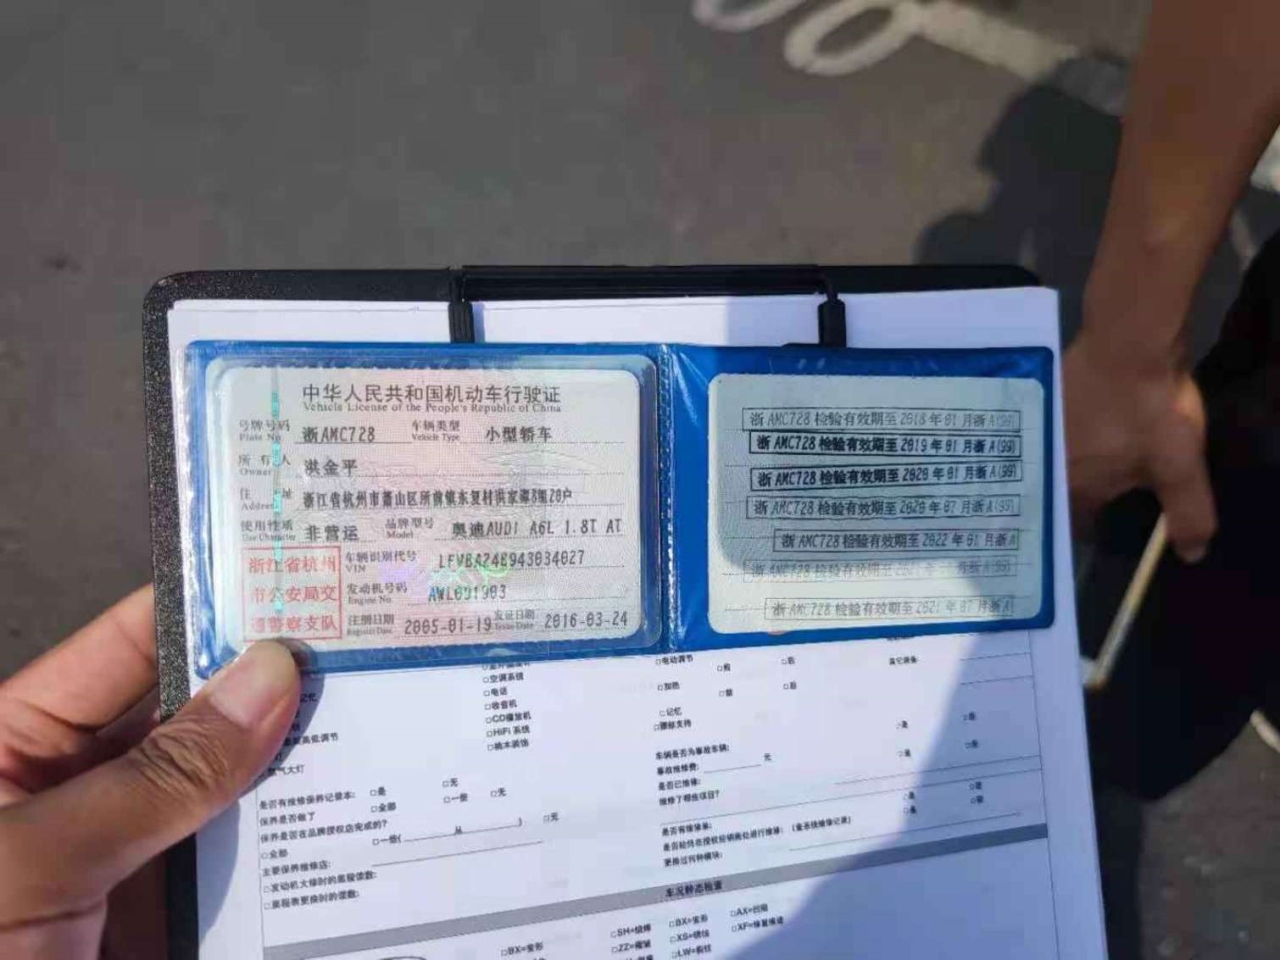 中华人民共和国机动车行驶证
Vehicle License of the People's Republic of China
号牌号码 浙AMC728 车辆类型 小型轿车
Plate No. Vehicle Type
所有人 洪金平
Owner
住址 浙江省杭州市萧山区所前镇东复村洪家潭8组20户
Address
使用性质 非营运 品牌型号 奥迪AUDI A6L 1.8T AT
Use Character Model
浙江省杭州
市公安局交
通警察支队
车辆识别代号
VIN
发动机号码
Engine No.
注册日期 2005-01-19 发证日期 2016-03-24
Register Date Issue Date
浙AMC728 检验有效期至2018年01月浙A(99)
浙AMC728 检验有效期至2019年01月浙A(99)
浙AMC728 检验有效期至2020年01月浙A(99)
浙AMC728 检验有效期至2020年07月浙A(99)
浙AMC728 检验有效期至2022年01月浙A
浙AMC728 检验有效期至2021年07月浙A
□空调系统
□电话
□收音机
□CD播放机
□HiFi 系统
□桃木装饰
□电动调节 □前 □后
□加热 □前 □后
□记忆
□腰部支持
其它装备:
高低调节
氙气大灯
是否有维修保养记录本: □是 □无
保养是否做了 □全部 □一些 □无
保养是否在品牌授权店完成的?
□全部 □一些( 从 ) □无
主要保养维修店:
□发动机大修时的里程读数:
□里程表更换时的读数:
车辆是否为事故车辆: □是 □否
事故维修费: 元
是否已维修: □是 □否
维修了哪些项目?
是否有维修单: □是 □否
更换过何种模块:
车况静态检查
□BX=变形
□SH=烧焊
□ZZ=褶皱
□BX=变形
□XS=锈蚀
□LW=裂纹
□AX=凹陷
□XF=修复痕迹